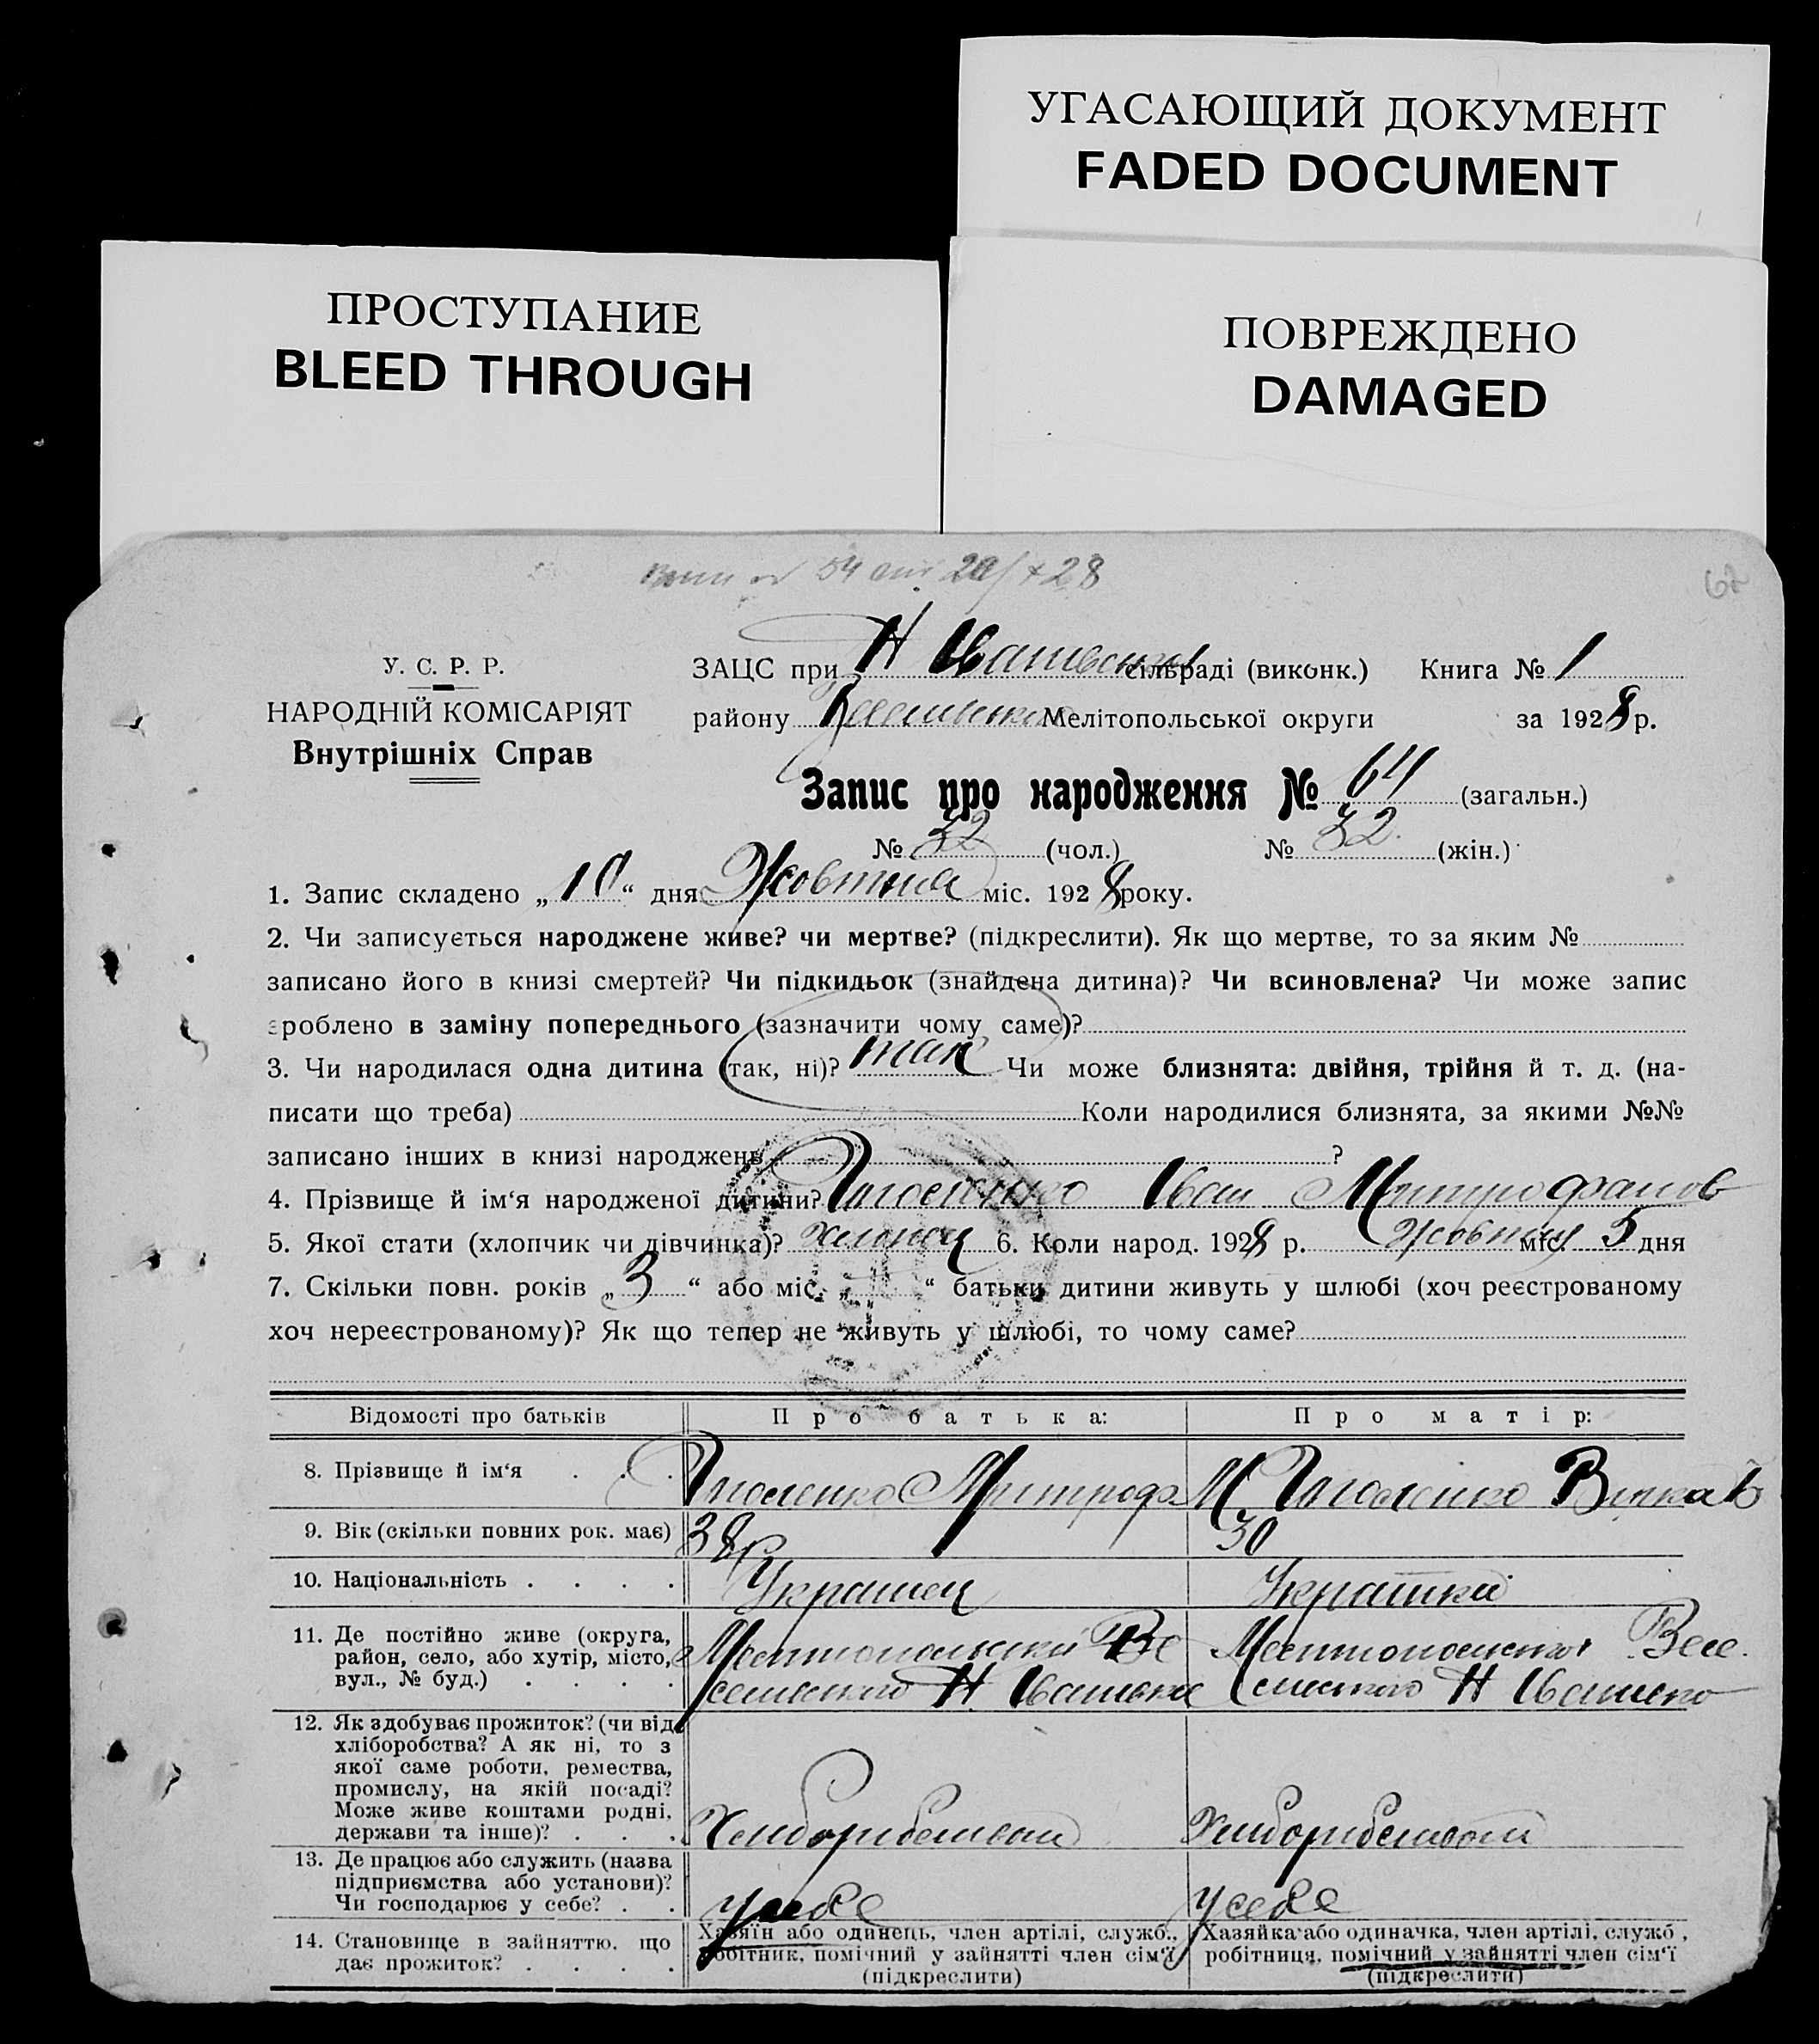 УГАСАЮЩИЙ ДОКУМЕНТ
FADED DOCUMENT
ПРОСТУПАНИЕ
BLEED THROUGH
ПОВРЕЖДЕНО
DAMAGED
28
62
У. С. Р. Р.
НАРОДНІЙ КОМІСАРІЯТ
Внутрішніх Справ
ЗАЦС при Н сільраді (виконк.) Книга № 1
району Мелітопольської округи за 1928 р.
Запис про народження № 64 (загальн.)
№ 32 (чол.) № 32 (жін.)
1. Запис складено „10“ дня Жовтня міс. 1928 року.
2. Чи записується народжене живе? чи мертве? (підкреслити). Як що мертве, то за яким №
записано його в книзі смертей? Чи підкидьок (знайдена дитина)? Чи всиновлена? Чи може запис
зроблено в заміну попереднього (зазначити чому саме)?
3. Чи народилася одна дитина (так, ні)? так Чи може близнята: двійня, трійня й т. д. (на-
писати що треба) Коли народилися близнята, за якими №№
записано інших в книзі народжень ?
4. Прізвище й ім‘я народженої дитини? Іван Митрофанов
5. Якої стати (хлопчик чи дівчинка)? хлопец 6. Коли народ. 1928 р. Жовтня міс. 5 дня
7. Скільки повн. років „3“ або міс. „ “ батьки дитини живуть у шлюбі (хоч реєстрованому
хоч нереєстрованому)? Як що тепер не живуть у шлюбі, то чому саме?
Відомості про батьків Про батька: Про матір:
8. Прізвище й ім‘я . . . Митроф М.
9. Вік (скільки повних рок. має) 38 30
10. Національність . . . . Украінец Украінка
11. Де постійно живе (округа,
район, село, або хутір, місто,
вул., № буд.) . . . .
Мелітопольскій Ве Мелітопольска Весе
Н Н
12. Як здобуває прожиток? (чи від
хліборобства? А як ні, то з
якої саме роботи, ремества,
промислу, на якій посаді?
Може живе коштами родні,
держави та інше)? . . .
Хлиборобством Хлиборобством
13. Де працює або служить (назва
підприємства або установи)?
Чи господарює у себе? . .
у себе у себе
14. Становище в зайняттю, що
дає прожиток? . . . .
Хазяїн або одинець, член артілі, служб., Хазяйка або одиначка, член артілі, служб ,
робітник, помічний у зайнятті член сім‘ї робітниця, помічний у зайнятті член сім‘ї
(підкреслити) (підкреслити)